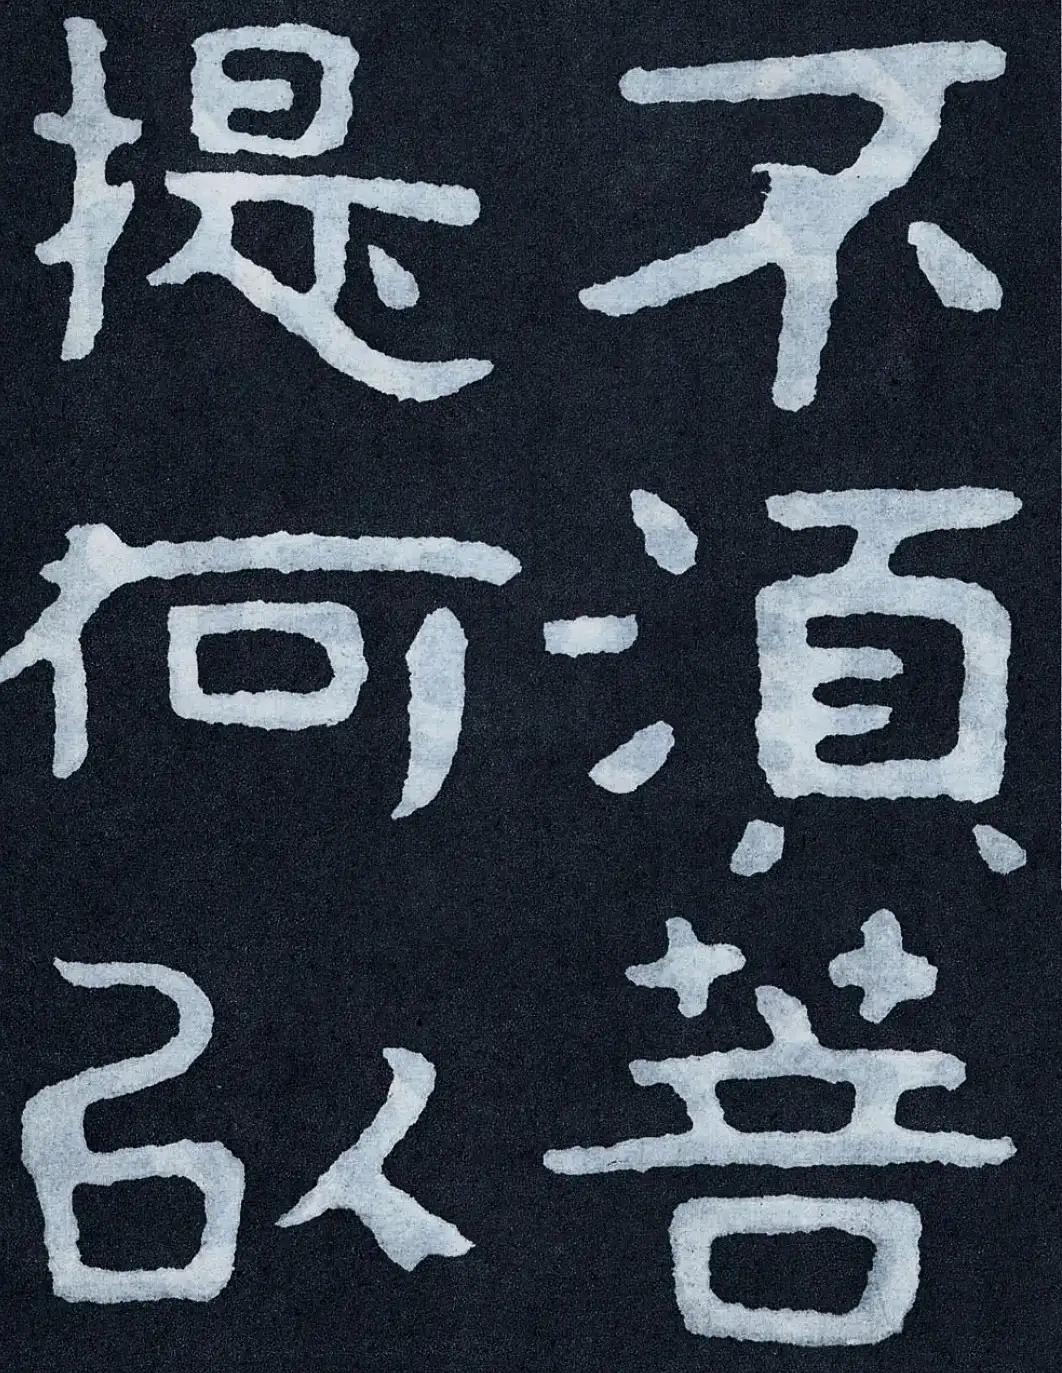 不須菩
提何以